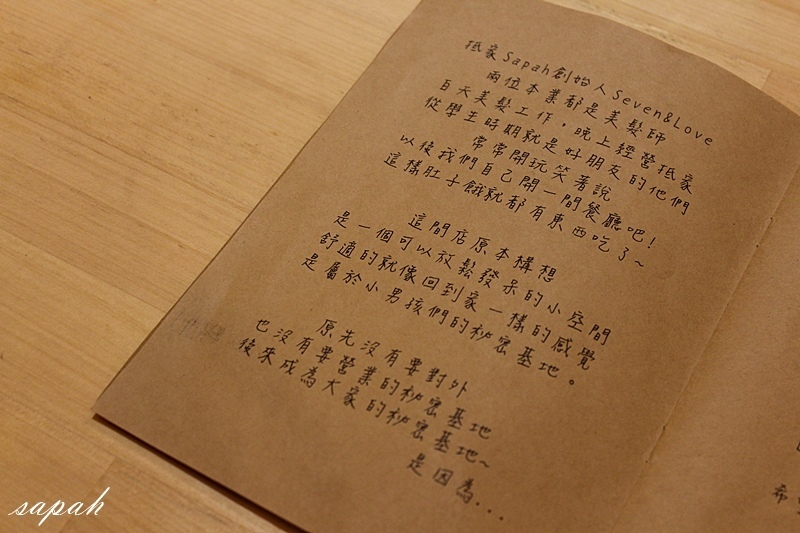 抵家Sapah創始人Seven&Love
兩位本業都是美髮師
白天美髮工作，晚上經營抵家
從學生時期就是好朋友的他們
常常開玩笑著說
以後我們自己開一間餐廳吧！
這樣肚子餓就都有東西吃了～
這間店原本構想
是一個可以放鬆發呆的小空間
舒適的就像回到家一樣的感覺
是屬於小男孩們的秘密基地。
原先沒有要對外
也沒有要營業的秘密基地
後來成為大家的秘密基地～
是因為...
希
sapah